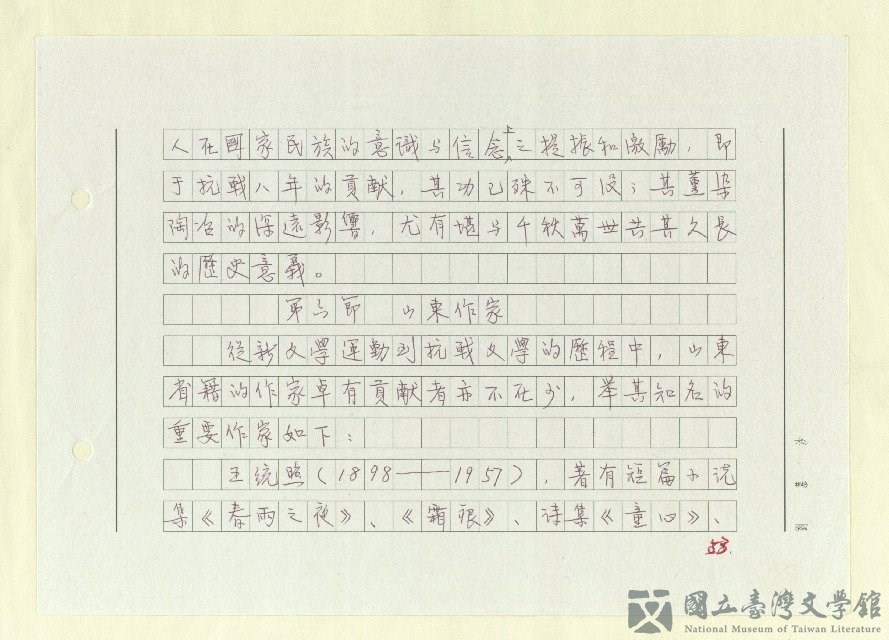 人在國家民族的意識与信念上之提振和激勵，即
于抗戰八年的貢献，其功已殊不可没；其薰染
陶冶的深遠影響，尤有堪与千秋萬世共其久長
的歷史意義。
第六節　山東作家
從新文學運動到抗戰文學的歷程中，山東
省籍的作家卓有貢献者亦不在少，举其知名的
重要作家如下：
王統照（1898——1957），著有短篇小說
集《春雨之夜》、《霜痕》、詩集《童心》、
53.
國立臺灣文學館
National Museum of Taiwan Literature